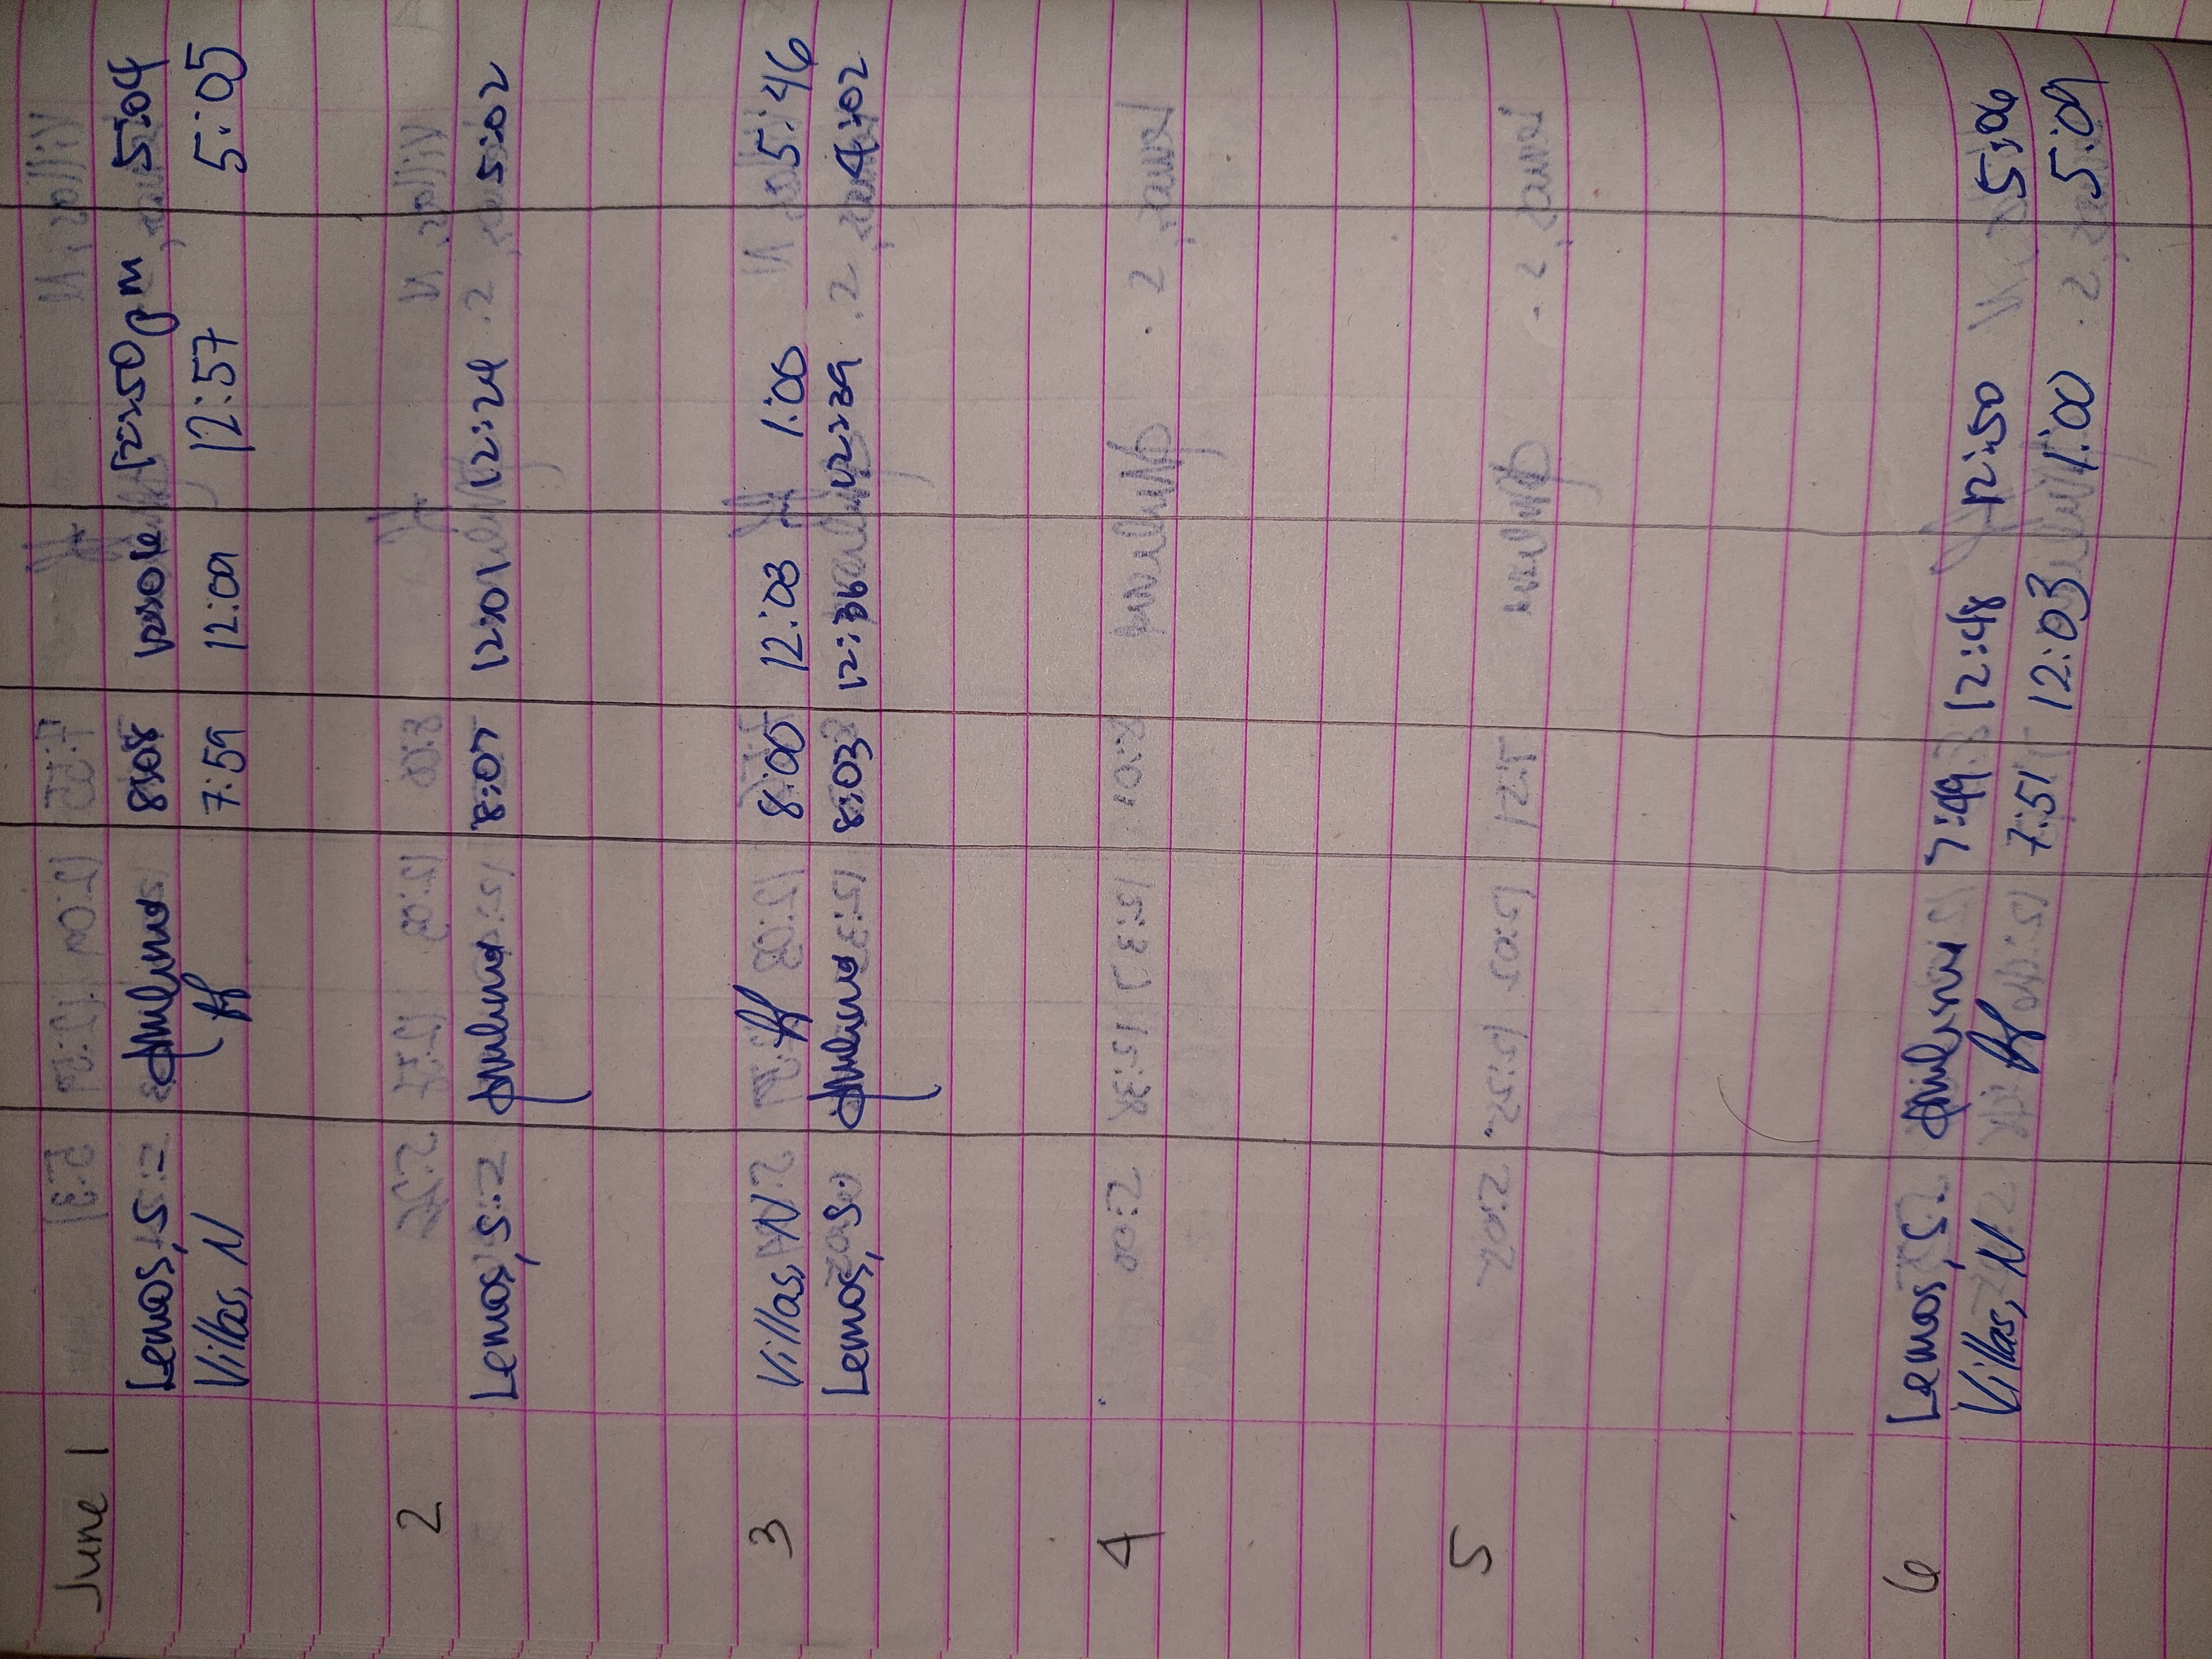 June 1
Lemos, S. 8:08 12:50pm 5:04
Villas, N 7:59 12:09 12:57 5:05
2
Lemos, S. 8:07 12:01 12:24 5:02
3
Villas, N 8:00 12:03 1:00 5:46
Lemos, S. 8:03 12:36 12:39 4:02
4
5
6
Lemos, S. 7:49 12:48 12:50 5:06
Villas, N 7:51 12:03 1:00 5:09